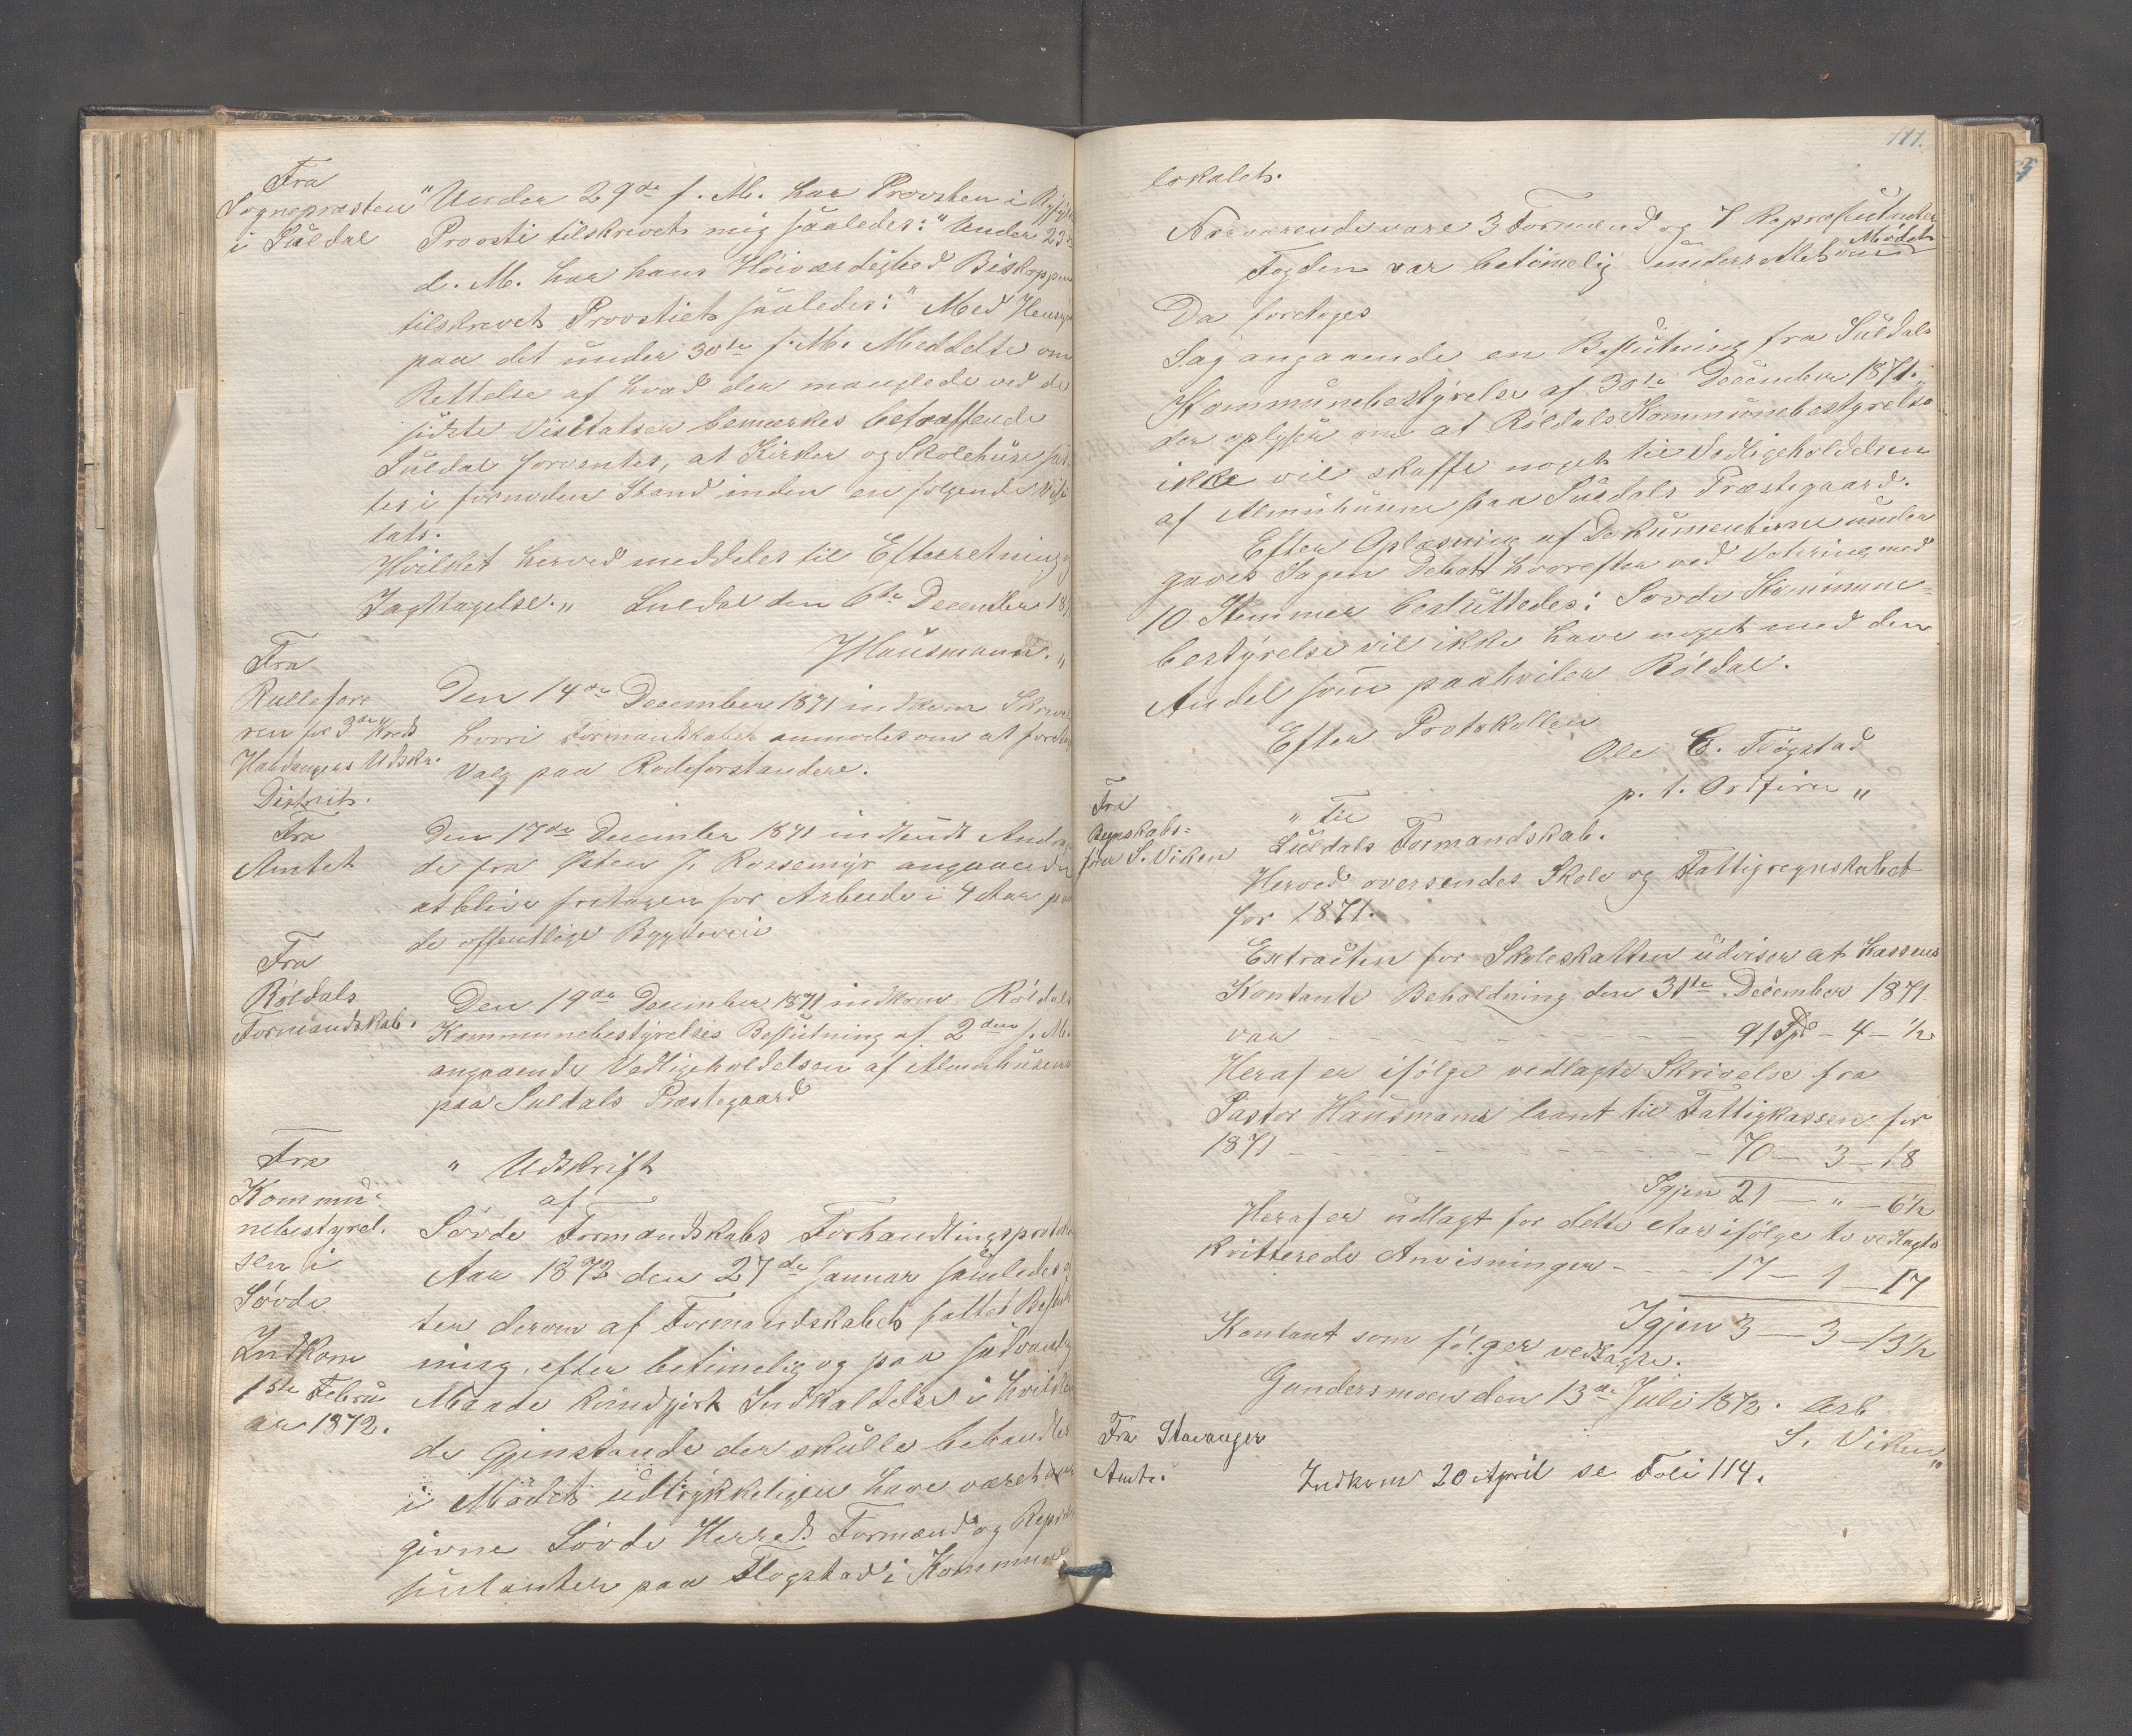 Fra
Sognepræsten
i Suldal
"Under 29de f. M. har Provsten i
Provsti tilskrevet mig saaledes: "Under 23de
d. M. har hans Höiærværdighed Biskoppen
tilskrevet Provstiet saaledes: "Med Hensyn
paa det under 30te f. M. Meddelte om
Rettelse af hvad der manglede ved de
sidste Visitatser bemærkes betræffende
Suldal forventes, at Kirker og Skolehuse sæt
tes i fornøden Stand inden en følgende Visi
tats.
Hvilket herved meddeles til Efterretning og
Iagttagelse." Suldal den 6te December 18
J Hausmann."
Fra
Rullefore
ren for 3die Kreds
Hardangers Udskr.
Distrikt.
Den 14de December 1871 indkom Skrivel
hvori Formandskabet anmodes om at foretag
Valg paa Rodeforstandere.
Fra
Amtet
Den 17de December 1871 indsendt Andra
de fra Peder J. Rossemyr angaaende
at blive fritagen for Arbeide i 4 Aar paa
de offentlige Bygdeveie
Fra
Röldals
Formandskab.
Den 19de December 1871 indkom Röldals
Kommunebestyrelses Beslutning af 2den f. M.
angaaende Vedligeholdelsen af Almuhusene
paa Suldals Præstegaard
Fra
Kommu=
nebestyrel.
sen i
Søvde
Indkom
1ste Febru
ar 1872.
" Udskrift
af
Søvde Formandskabs Forhandlingsprotokol
Aar 1872 den 27de Januar samledes ef
ter derom af Formandskabet fattet Beslut
ning, efter betimelig og paa sædvanlig
Maade kundgjort Indkaldelse i hvilken
de Gjenstande der skulle behandles
i Mödet udtrykkeligen have været
givne Søvde Herreds Formænd og Repræ
sentanter paa Flogstad i Kommune
111.
lokalet.
Nærværende vare 3 Formænd og 7 Repræsentanter
Fogden var betimelig underrettet om Mödet
Da foretoges
Sag angaaende en Beslutning fra Suldals
Kommunebestyrelse af 30te December 1871.,
der oplyser om at Röldals Kommunebestyrelse
ikke vil skaffe noget til Vedligeholdelsen
af Almuhusene paa Suldals Præstegaard.
Efter Oplæsning af Dokumenterne under
gaves Sagen Debat hvorefter ved Votering med
10 Stemmer besluttedes: Søvde Kommune=
bestyrelse vil ikke have noget med den
Andel som paahviler Röldal.
Efter Protokollen
Ole E. Flögstad
p. t. Ordfører "
Fra
Regnskabs=
fører S. Viken
" Til
Suldals Formandskab.
Herved oversendes Skole og Fattigregnskabet
for 1871.
Extracten for Skoleskatten udviser at Kassens
Kontante Beholdning den 31te December 1871
var - - - - - - - - - 91 Spd - 4 - ½
Heraf er ifölge vedlagte Skrivelse fra
Pastor Hausmann laant til Fattigkassen for
1871 - - - - - - - - - 70 - 3 - 18
Igjen 21 - " - 6½
Heraf er udlagt for dette Aar ifölge to vedlagte
kvitterede Anvisninger - - - 17 - 1 - 17
Igjen 3 - 3 - 13½
Kontant som følger vedlagte.
Gundersmoen den 13de Juli 1872. Ærb
S. Viken"
Fra Stavanger
Amt.
Indkom 20 April se Foli 114.